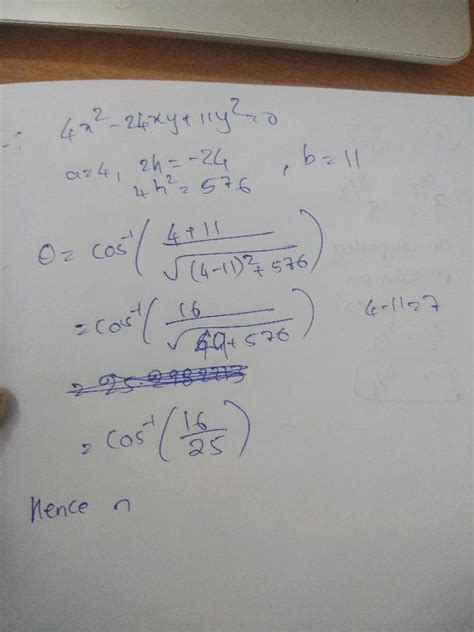 ∴ 4x² - 24xy + 11y² = 0
a = 4, 2h = -24, b = 11
4h² = 576
θ = cos⁻¹( 4 + 11 / √(4-11)² + 576 )
= cos⁻¹( 16 / √49 + 576 ) 4-11 = 7
= cos⁻¹( 16 / 25 )
Hence n